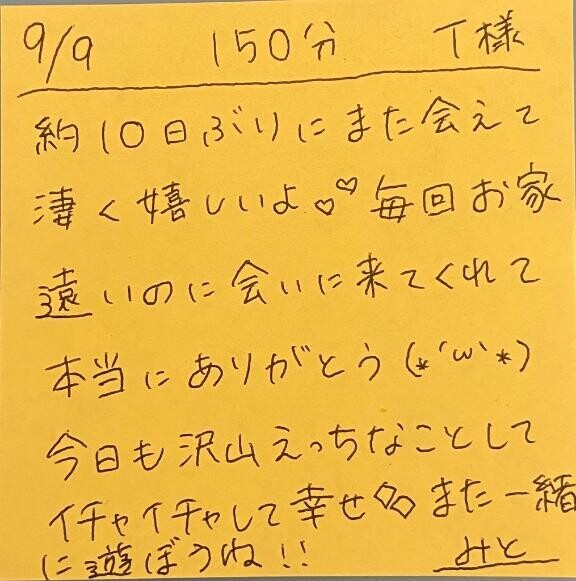 9/9 150分 T様
約10日ぶりにまた会えて
凄く嬉しいよ♡♡毎回お家
遠いのに会いに来てくれて
本当にありがとう(*´ω`*)
今日も沢山えっちなことして
イチャイチャして幸せ◇◇また一緒
に遊ぼうね!! みと